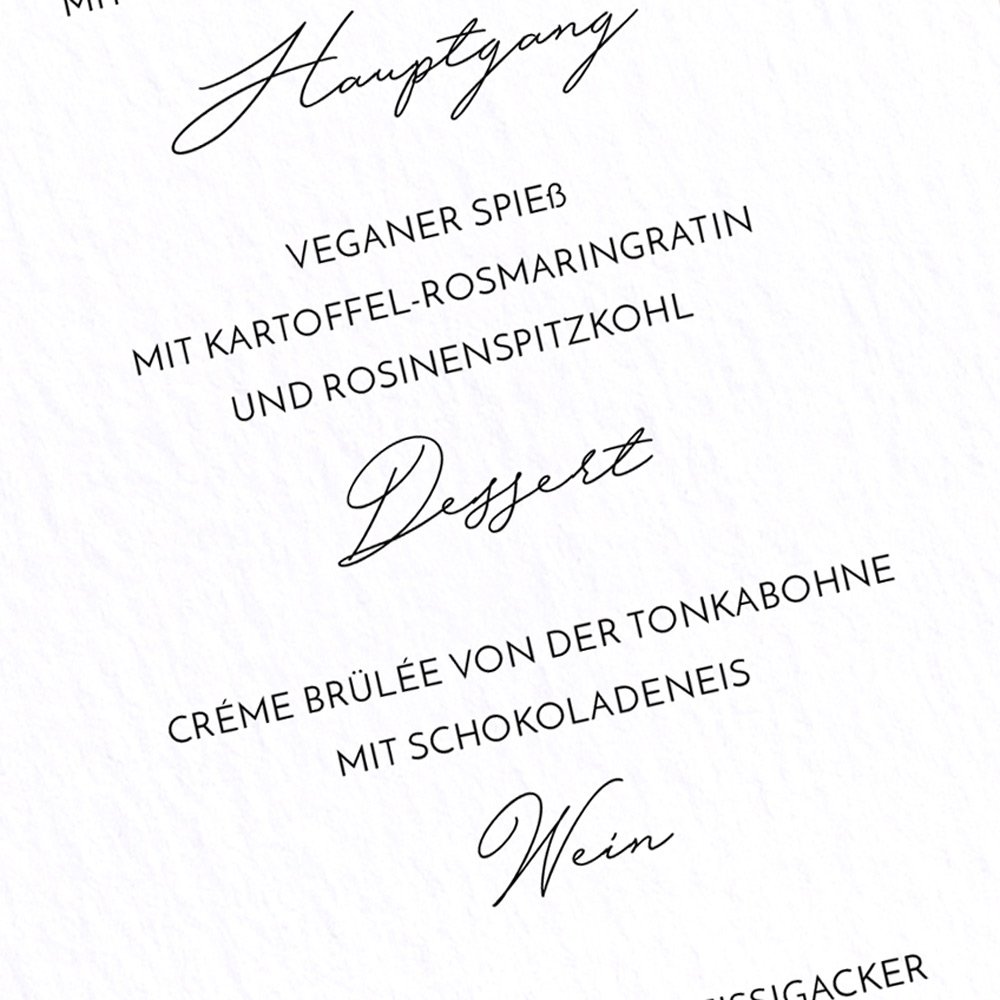 MIT
Hauptgang
VEGANER SPIEß
MIT KARTOFFEL-ROSMARINGRATIN
UND ROSINENSPITZKOHL
Dessert
CRÉME BRÜLÉE VON DER TONKABOHNE
MIT SCHOKOLADENEIS
Wein